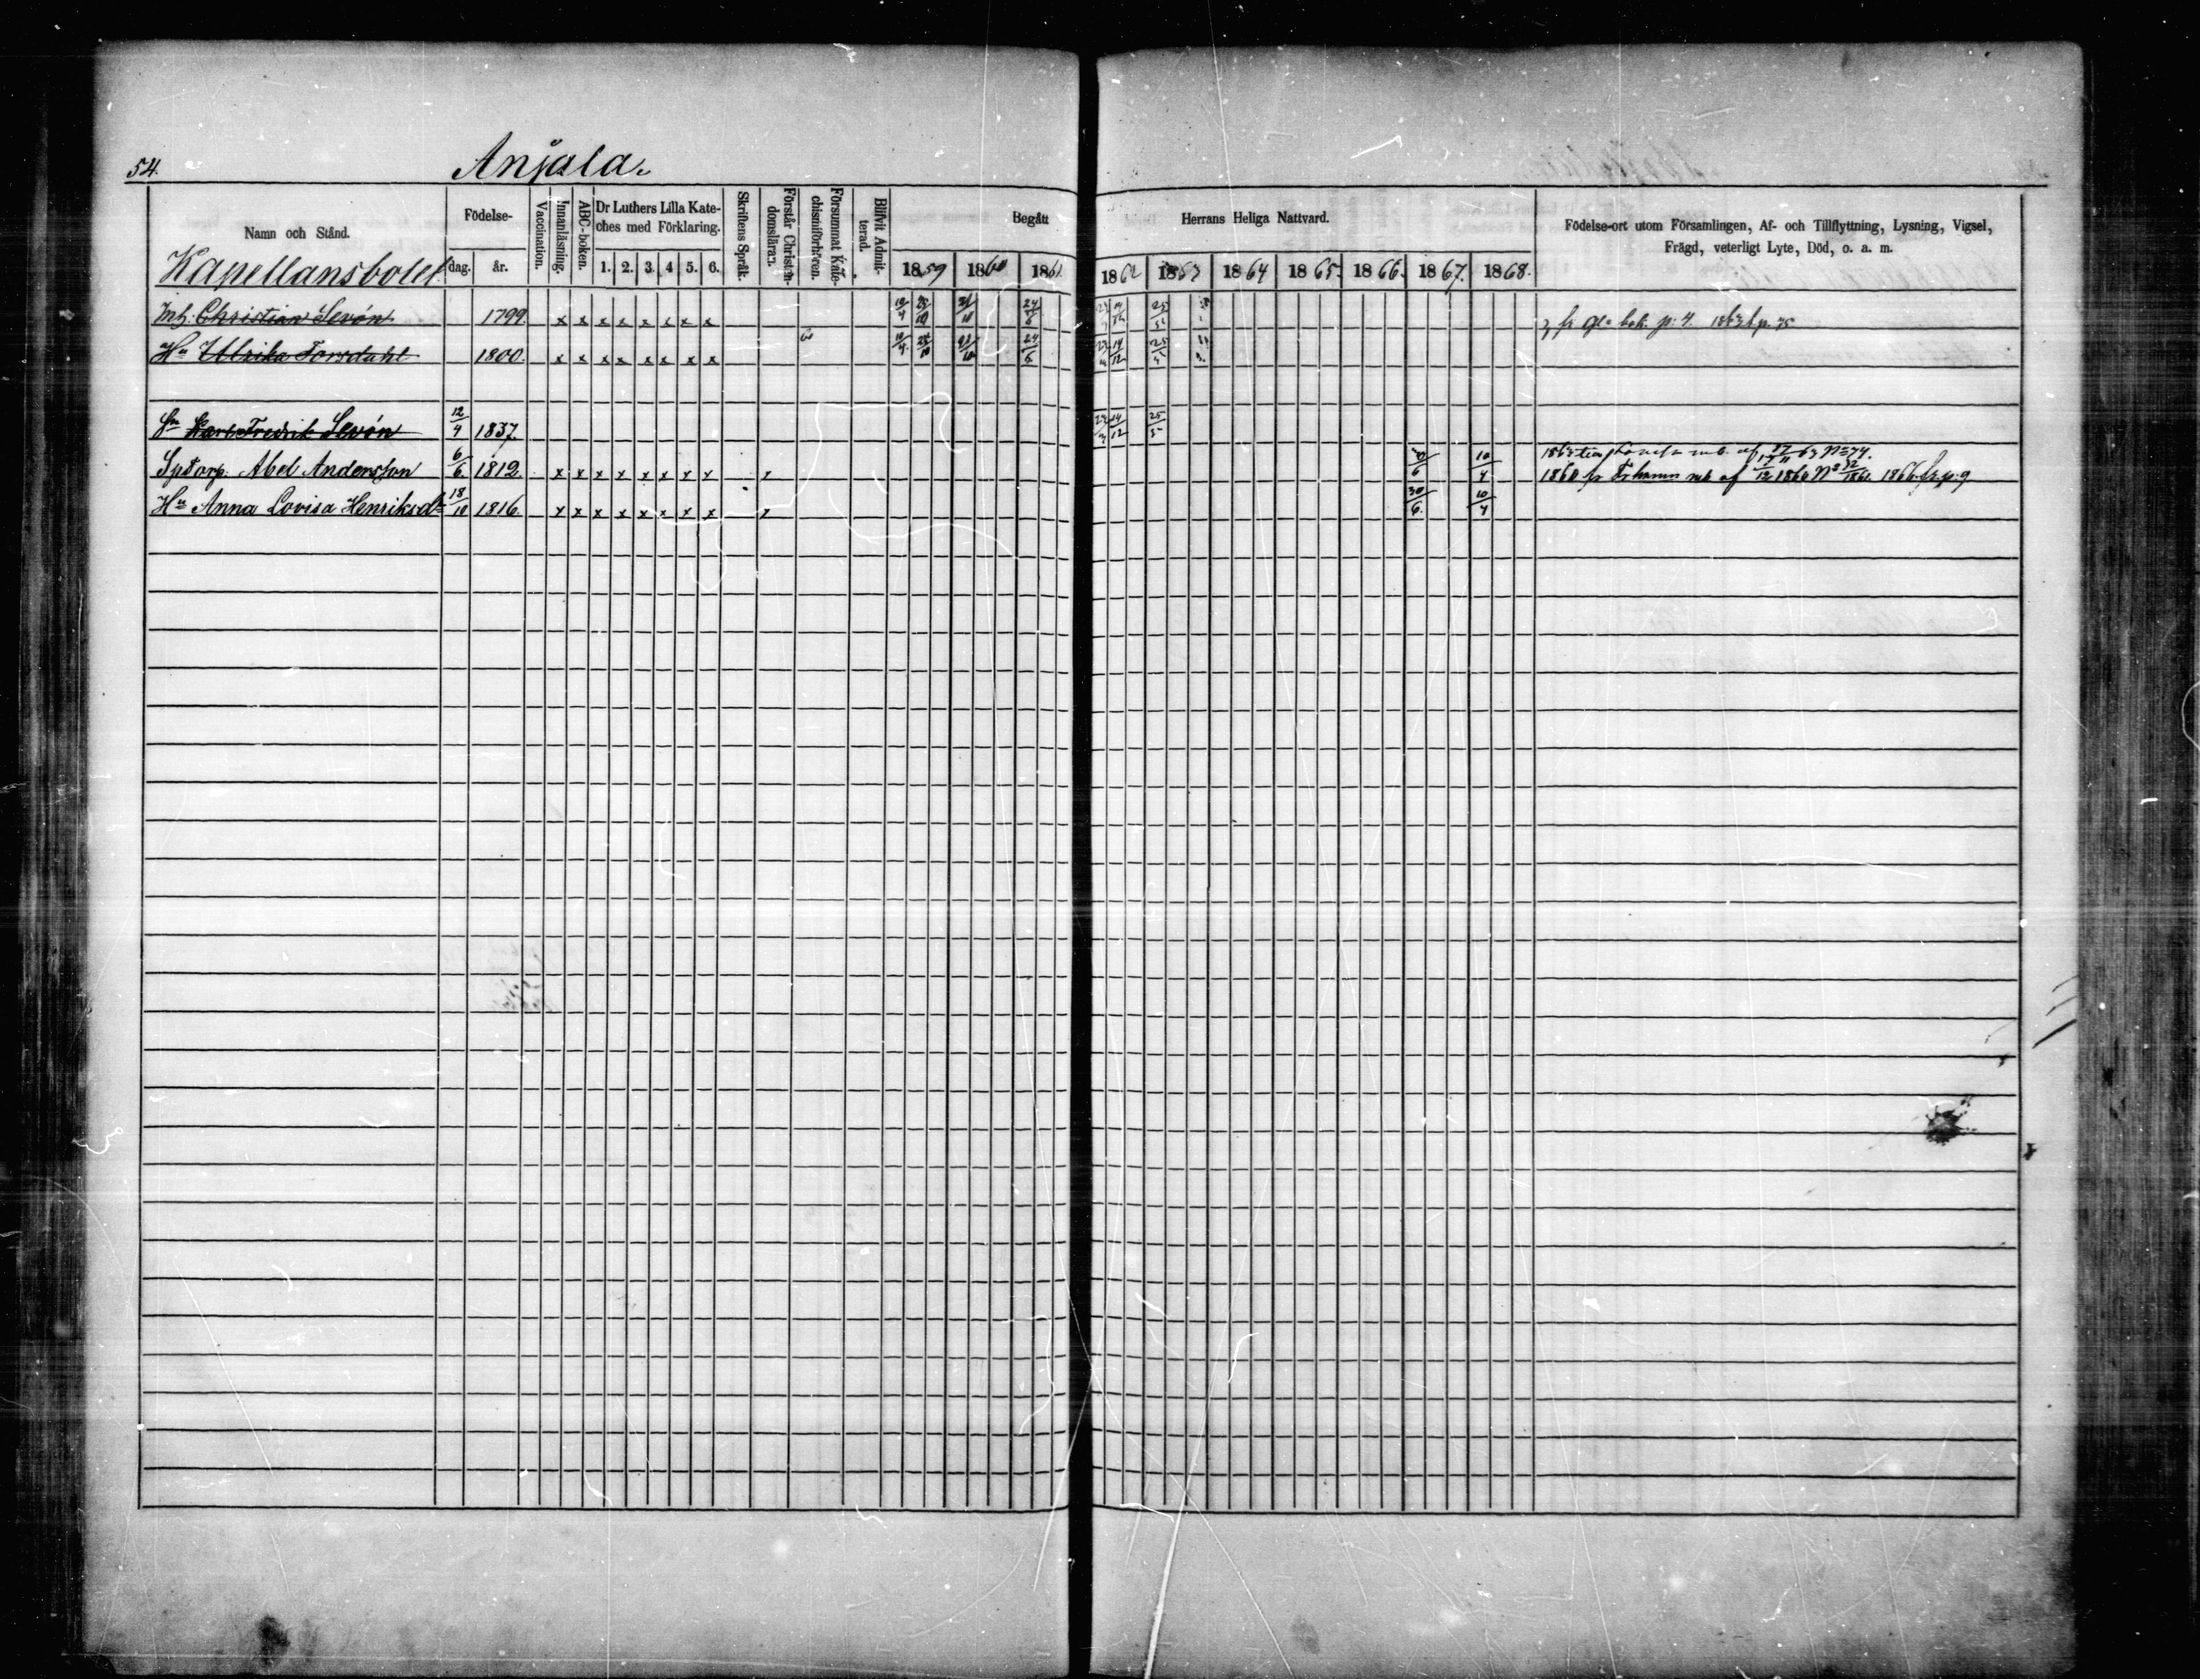 54. Anjala.
Namn och Stånd.
Födelse-
dag. år.
Vaccination.
Innanläsning.
ABC-boken.
Dr Luthers Lilla Kate-
ches med Förklaring.
1. 2. 3. 4 5. 6.
Skriftens Språk.
Förstår Christen-
domslära.
Försummat Kate-
chismiförhören.
Blifvit Admit-
terad.
Begått Herrans Heliga Nattvard.
1859 1860 1861 1862 1863 1864 1865. 1866. 1867. 1868.
Födelse-ort utom Församlingen, Af- och Tillflyttning, Lysning, Vigsel,
Frägd, veterligt Lyte, Död, o. a. m.
Kapellansbolet
Inh: Christian Levón 1799. x x x x x x x x 10/4 25/10 21/10 24/6 bok. p: 4. 1863 p. 75
Hu Ulrika Forsdahl 1800. x x x x x x x x 10/4 25/10 21/10 24/6 14/12 25/5
Sn Karl Fredrik Levón 12/4 1837. 14/12 25/5
Sptorp. Abel Andersson 6/6 1812. x x x x x x x x 30/6 10/4 1860 fr Frhamn af 12 1860 No 1861. 1866 fr p: 9
Hu Anna Lovisa Henriksdr 18/10 1816. x x x x x x x x 30/6 10/4